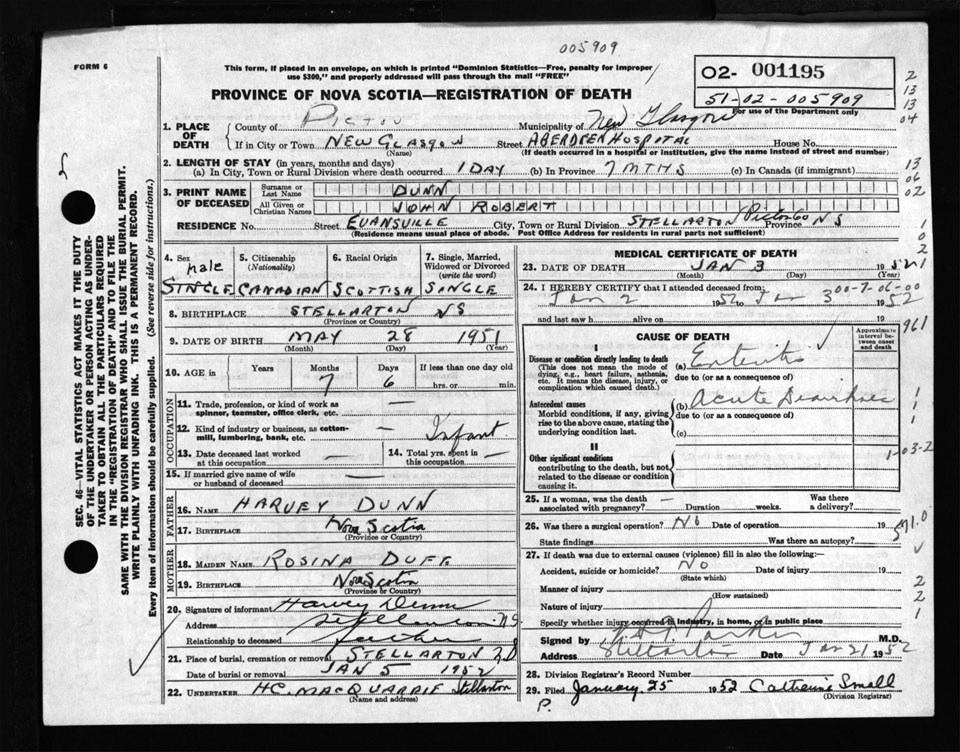 005909
FORM 6
This form, if placed in an envelope, on which is printed "Dominion Statistics—Free, penalty for improper
use $300," and properly addressed will pass through the mail "FREE"
O2- 001195
51-02-005909
For use of the Department only
PROVINCE OF NOVA SCOTIA—REGISTRATION OF DEATH
1. PLACE OF DEATH
County of Pictou Municipality of New Glasgow
If in City or Town NEW GLASGOW Street ABERDEEN HOSPITAL House No.
(Name) (If death occurred in a hospital or institution, give the name instead of street and number)
2. LENGTH OF STAY (in years, months and days)
(a) In City, Town or Rural Division where death occurred 1 DAY (b) In Province 7 MTHS (c) In Canada (if immigrant)
3. PRINT NAME OF DECEASED
Surname or Last Name DUNN
All Given or Christian Names JOHN ROBERT
RESIDENCE No. Street EVANSVILLE City, Town or Rural Division STELLARTON Pictou Co Province NS
(Residence means usual place of abode. Post Office Address for residents in rural parts not sufficient)
4. Sex male
SINGLE
5. Citizenship (Nationality) CANADIAN
6. Racial Origin SCOTTISH
7. Single, Married, Widowed or Divorced (write the word) SINGLE
8. BIRTHPLACE STELLARTON NS
(Province or Country)
9. DATE OF BIRTH MAY 28 1951
(Month) (Day) (Year)
10. AGE in Years Months Days If less than one day old
7 6 hrs. or min.
OCCUPATION
11. Trade, profession, or kind of work as spinner, teamster, office clerk, etc. —
12. Kind of industry or business, as cotton-mill, lumbering, bank, etc. Infant
13. Date deceased last worked at this occupation —
14. Total yrs. spent in this occupation —
15. If married give name of wife or husband of deceased —
FATHER
16. NAME HARVEY DUNN
17. BIRTHPLACE Nova Scotia
(Province or Country)
MOTHER
18. MAIDEN NAME ROSINA DUFF
19. BIRTHPLACE Nova Scotia
(Province or Country)
20. Signature of informant Harvey Dunn
Address Stellarton NS
Relationship to deceased father
21. Place of burial, cremation or removal STELLARTON
Date of burial or removal JAN 5 1952
22. UNDERTAKER HC. MACQUARRIE Stellarton
(Name and address)
MEDICAL CERTIFICATE OF DEATH
23. DATE OF DEATH JAN 3 1952
(Month) (Day) (Year)
24. I HEREBY CERTIFY that I attended deceased from:
Jan 2 1952 to Jan 3 1952
00-7-06-00
and last saw h alive on 19
961
CAUSE OF DEATH
Approximate interval between onset and death
I
Disease or condition directly leading to death
(This does not mean the mode of dying, e.g., heart failure, asthenia, etc. It means the disease, injury, or complication which caused death.)
(a) Enteritis
due to (or as a consequence of)
Antecedent causes
Morbid conditions, if any, giving rise to the above cause, stating the underlying condition last.
(b) Acute Diarrhoea
due to (or as a consequence of)
(c)
II
Other significant conditions
contributing to the death, but not related to the disease or condition causing it.
1-03-2
25. If a woman, was the death associated with pregnancy? — Duration weeks. Was there a delivery?
26. Was there a surgical operation? No Date of operation 19
State findings Was there an autopsy?
571.0
27. If death was due to external causes (violence) fill in also the following:—
Accident, suicide or homicide? No Date of injury 19
(State which)
Manner of injury
(How sustained)
Nature of injury
Specify whether injury occurred in industry, in home, or in public place
Signed by Parker M.D.
Address Stellarton Date Jan 21 1952
28. Division Registrar's Record Number
29. Filed January 25 1952 Catherine Small
(Division Registrar)
P.
SEC. 46—VITAL STATISTICS ACT MAKES IT THE DUTY
OF THE UNDERTAKER OR PERSON ACTING AS UNDER-
TAKER TO OBTAIN ALL THE PARTICULARS REQUIRED
IN THE "REGISTRATION OF DEATH" AND TO FILE THE
SAME WITH THE DIVISION REGISTRAR WHO SHALL ISSUE THE BURIAL PERMIT.
WRITE PLAINLY WITH UNFADING INK. THIS IS A PERMANENT RECORD.
Every item of information should be carefully supplied. (See reverse side for instructions.)
2
13
13
04
13
06
02
1
0
2
1
1
1
2
2
1